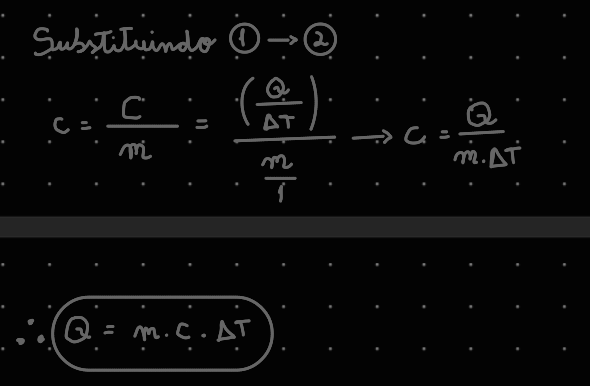 Substituindo ① → ②
c = C/m = (Q/ΔT)/(m/1) → c = Q/(m.ΔT)
∴ Q = m.c.ΔT